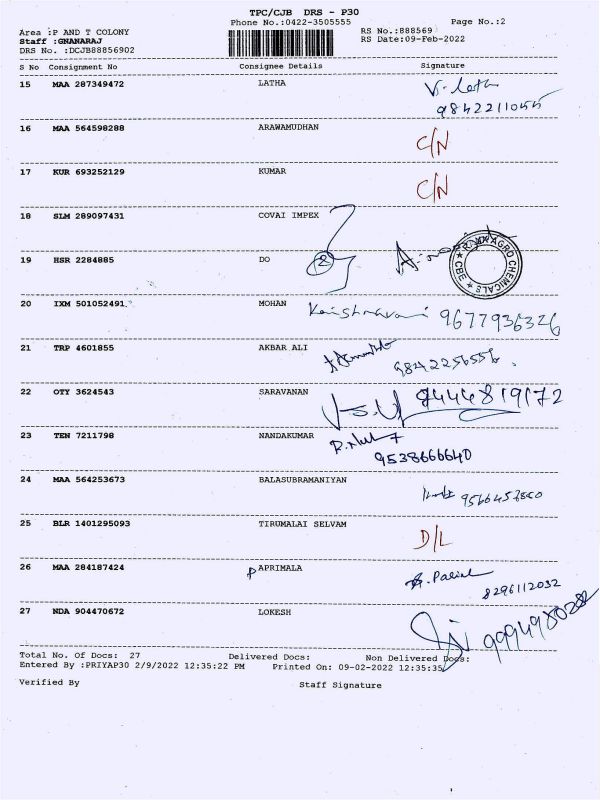 TPC/CJB DRS - P30
Phone No.:0422-3505555
Page No.:2
Area :P AND T COLONY
RS No.:888569
Staff :GNANARAJ
RS Date:09-Feb-2022
DRS No. :DCJB88856902
S No Consignment No Consignee Details Signature
15 MAA 287349472 LATHA
9842211055
16 MAA 564598288 ARAWAMUDHAN C/N
17 KUR 693252129 KUMAR C/N
18 SLM 289097431 COVAI IMPEX
19 HSR 2284885 DO 2
AGRO CHEMICALS ★ CBE ★
20 IXM 501052491 MOHAN 9677936326
21 TRP 4601855 AKBAR ALI 9842256556
22 OTY 3624543 SARAVANAN 9444819172
23 TEN 7211798 NANDAKUMAR
9538666640
24 MAA 564253673 BALASUBRAMANIYAN
25 BLR 1401295093 TIRUMALAI SELVAM D/L
26 MAA 284187424 PAPRIMALA
8296112032
27 NDA 904470672 LOKESH
Total No. of Docs: 27 Delivered Docs: Non Delivered Docs:
Entered By :PRIYAP30 2/9/2022 12:35:22 PM Printed On: 09-02-2022 12:35:35
Verified By Staff Signature